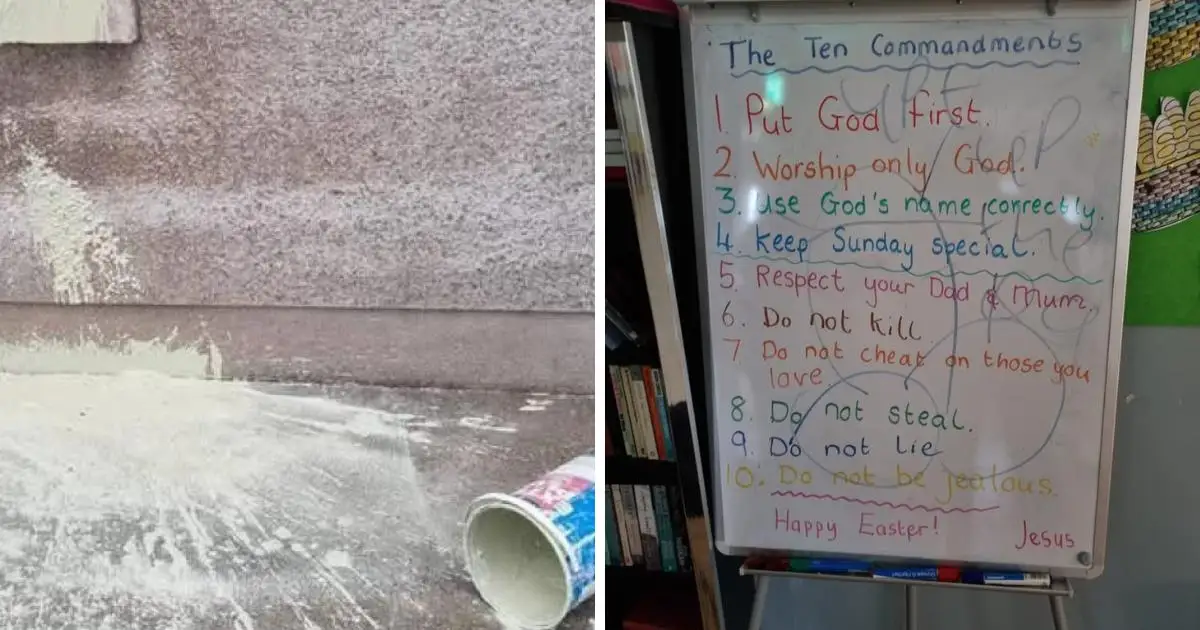 The Ten Commandments
1. Put God first.
2. Worship only God.
3. Use God's name correctly.
4. Keep Sunday special.
5. Respect your Dad & Mum.
6. Do not kill
7 Do not cheat on those you
love.
8. Do not steal.
9. Do not lie
10. Do not be jealous.
Happy Easter!
Jesus